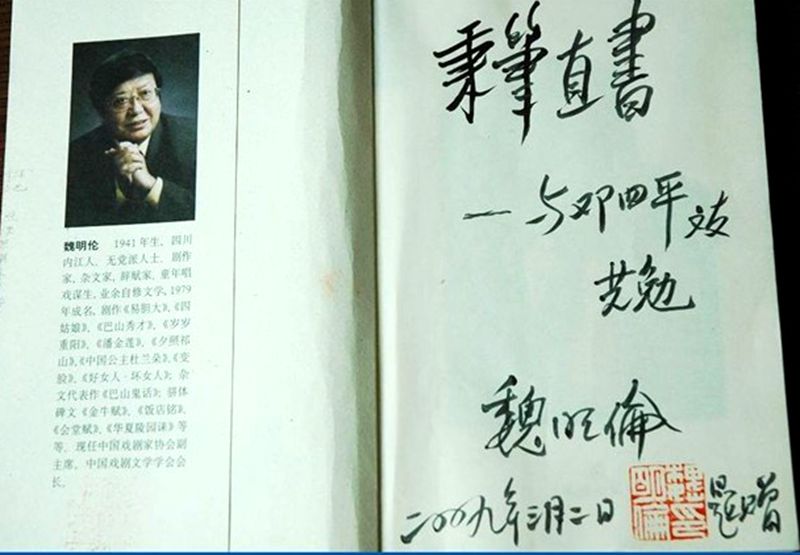 魏明伦 1941年生，四川
内江人。无党派人士。剧作
家，杂文家，辞赋家。童年唱
戏谋生，业余自修文学，1979
年成名，剧作《易胆大》、《四
姑娘》、《巴山秀才》、《岁岁
重阳》、《潘金莲》、《夕照祁
山》、《中国公主杜兰朵》、《变
脸》、《好女人·坏女人》；杂
文代表作《巴山鬼话》；骈体
碑文《金牛赋》、《饭店铭》、
《会堂赋》、《华夏陵园诔》等
等。现任中国戏剧家协会副
主席，中国戏剧文学学会会
长。
秉筆直書
—与邓四平友
共勉
魏明倫
二00九年三月二日
魏明倫印
题赠